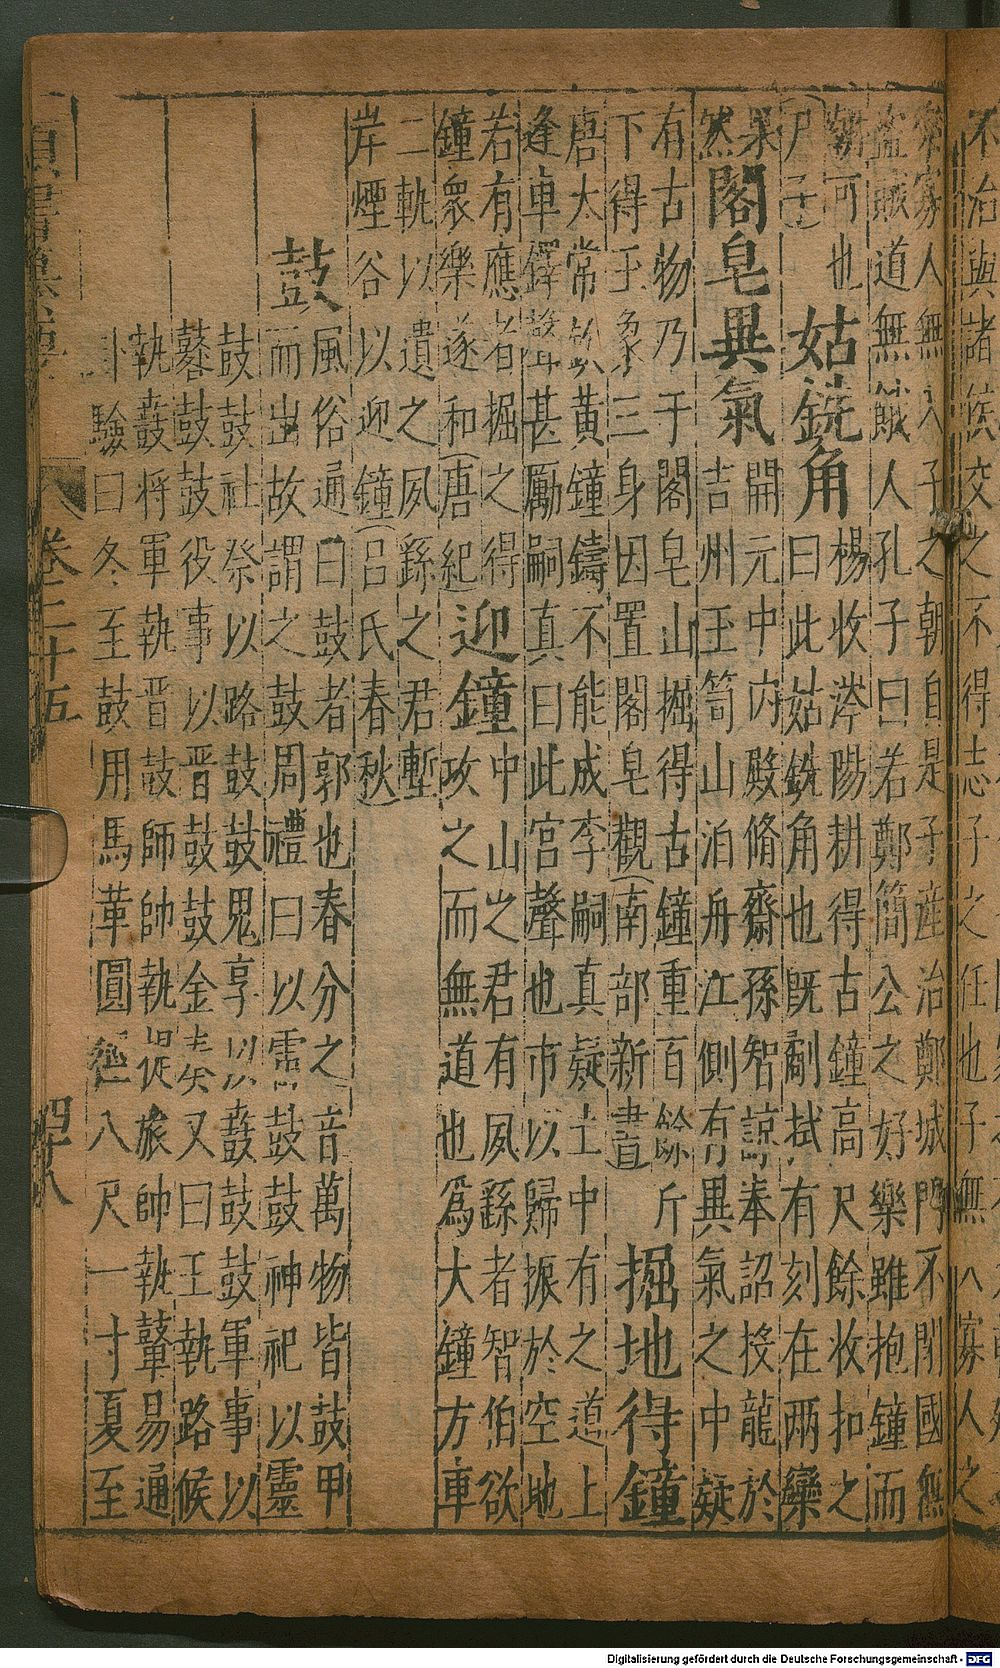 不治與諸侯交之不得志子之任也子無入寡人之
樂寡人無入子之朝自是子産治鄭城門不閉國無
盜賊道無餓人孔子曰若鄭簡公之好樂雖抱鐘而
朝可也 姑銑角 楊收涔陽耕得古鐘高尺餘收扣之
尸子 曰此姑銑角也旣劀拭有刻在兩欒
果 開元中内殿脩齋孫智諒奉詔投龍於
然 閤皂異氣 吉州玉笥山泊舟江側有異氣之中疑
有古物乃于閤皂山掘得古鐘重百餘斤
下得玉象三身因置閤皂觀南部新書 掘地得鐘
唐太常缺黃鐘鑄不能成李嗣真疑土中有之道上
逢車鐸聲甚厲嗣真曰此宮聲也市以歸振於空地
若有應者掘之得 中山之君有夙繇者智伯欲
鐘衆樂遂和唐紀 迎鐘 攻之而無道也爲大鐘方車
二軌以遺之夙繇之君塹
岸煙谷以迎鐘呂氏春秋
鼓 風俗通曰鼓者郭也春分之音萬物皆鼓甲
而出故謂之鼓周禮曰以雷鼓鼓神祀以靈
鼓鼓社祭以路鼓鼓鬼享以鼖鼓鼓軍事以
鼛鼓鼓役事以晋鼓鼓金奏又曰王執路候
執鼖將軍執晋鼓師帥執提旅帥執鼙易通
卦驗曰冬至鼓用馬革圓徑八尺一寸夏至
卷二十五
四十八
Digitalisierung gefördert durch die Deutsche Forschungsgemeinschaft - DFG